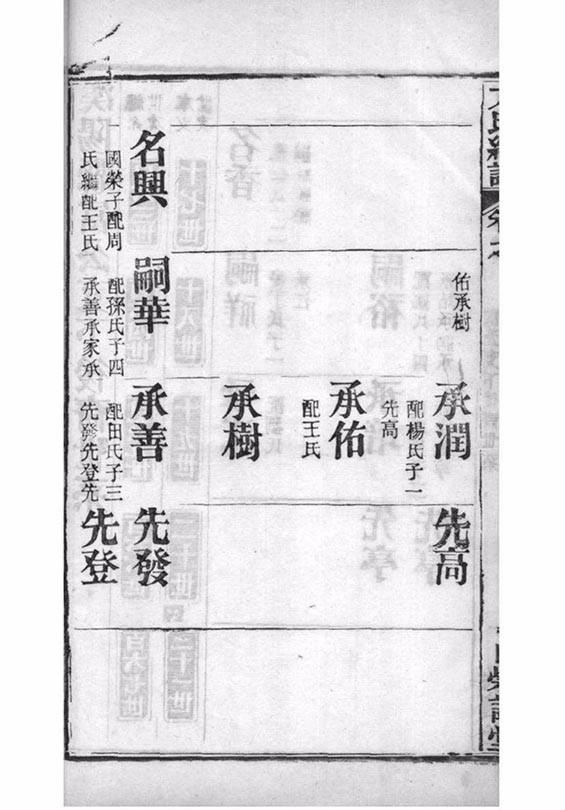 佑承樹
承潤
配楊氏子一
先高
先高
承佑
配王氏
承樹
名興
國榮子配周
氏繼配王氏
嗣華
配孫氏子四
承善承家承
承善
配田氏子三
先發先登先
先發
先登